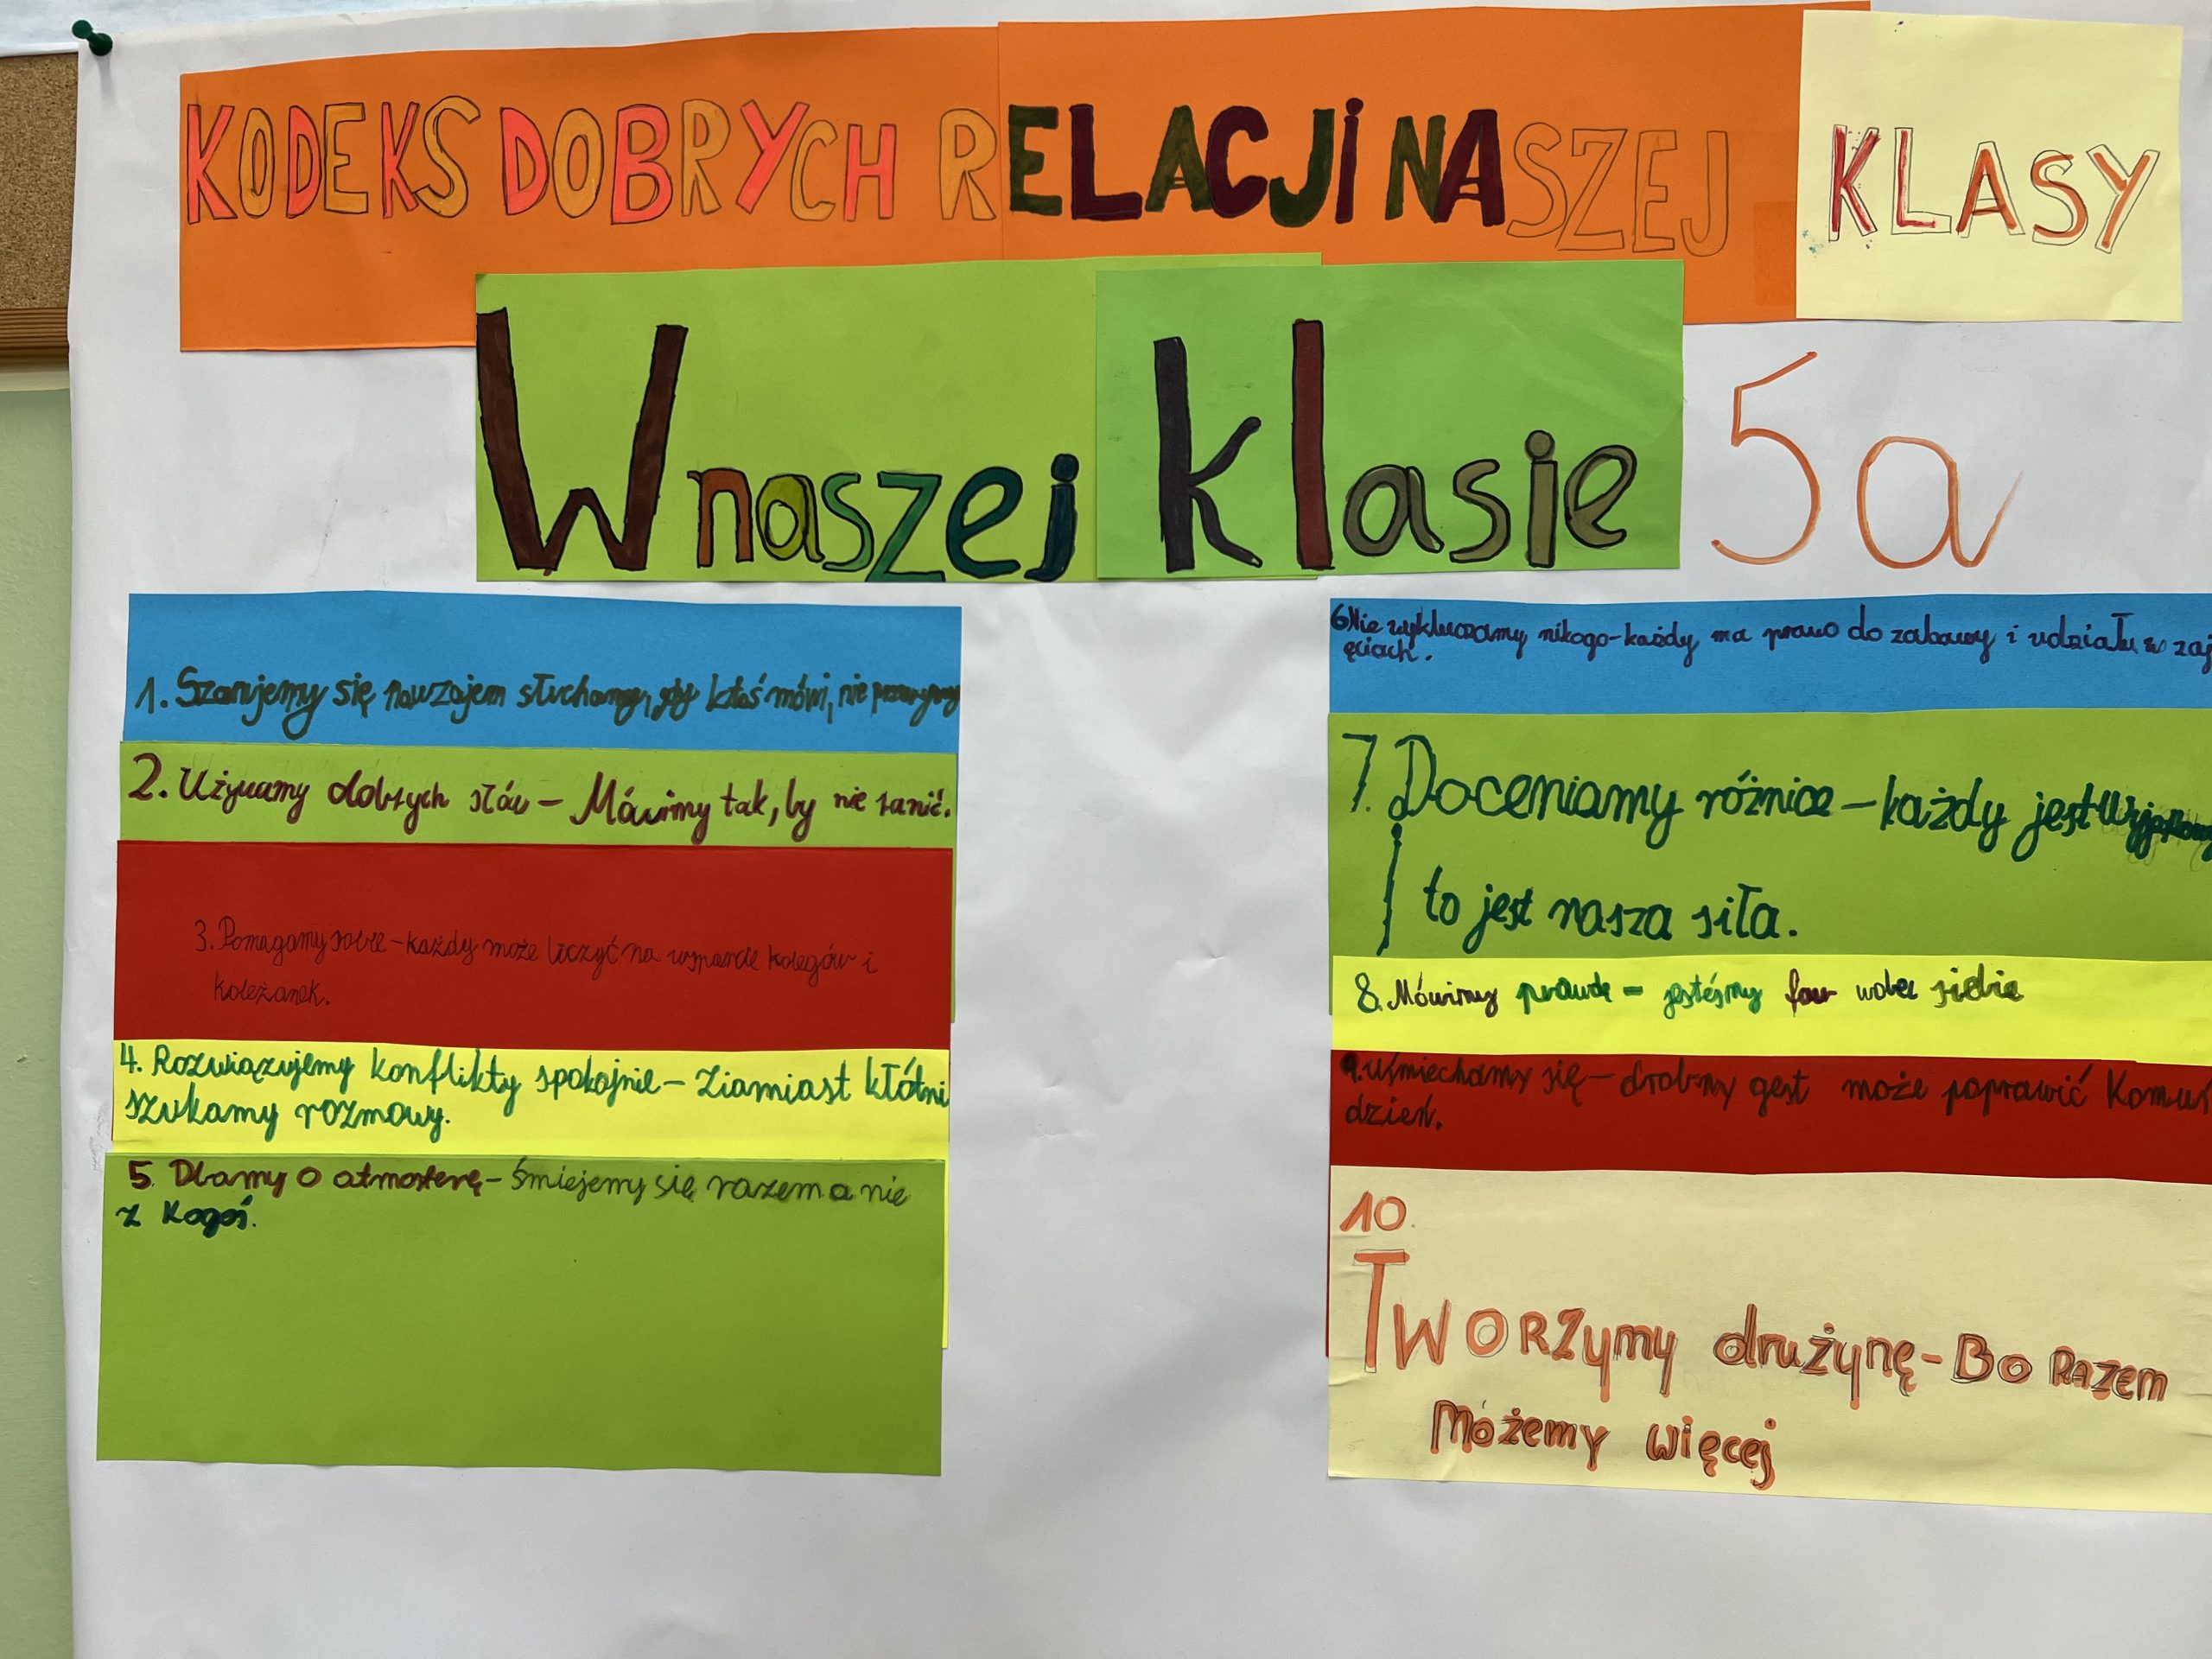 KODEKS DOBRYCH RELACJI NASZEJ KLASY
W naszej klasie 5a
1. Szanujemy się nawzajem słuchamy, gdy ktoś mówi, nie
2. Używamy dobrych słów – Mówimy tak, by nie ranić.
3. Pomagamy sobie – każdy może liczyć na wsparcie kolegów i
koleżanek.
4. Rozwiązujemy konflikty spokojnie – Ziamiast kłótni
szukamy rozmowy.
5. Dbamy o atmosferę – śmiejemy się razem a nie
z kogoś.
6 Nie wykluczamy nikogo – każdy ma prawo do zabawy i udziału w zaj
ęciach.
7. Doceniamy różnice – każdy jest
i to jest nasza siła.
8. Mówimy prawdę – jesteśmy wobec siebie
9. Uśmiechamy się – drobny gest może poprawić Komuś
dzień.
10.
TWORZymy drużynę – Bo RAZEM
Możemy więcej